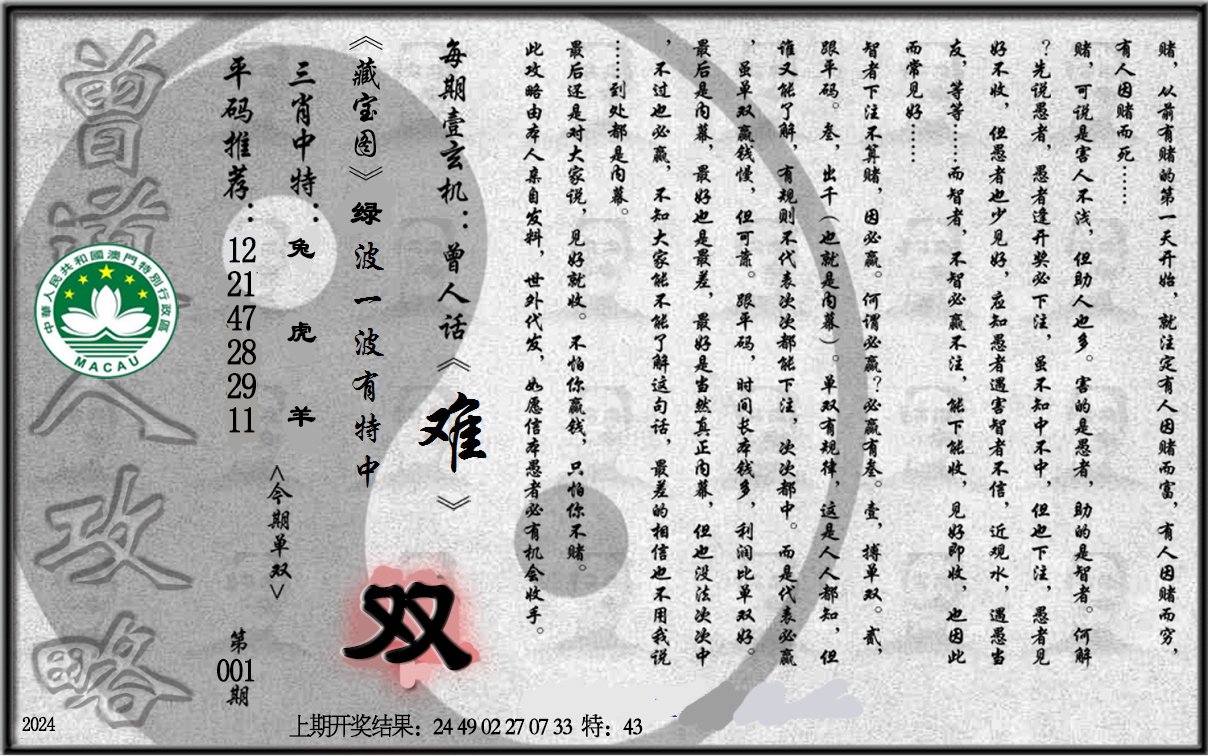 赌，从前有赌的第一天开始，就注定有人因赌而富，有人因赌而穷，
有人因赌而死……
赌，可说是害人不浅，但助人也多。害的是愚者，助的是智者。何解
？先说愚者，愚者逢开奖必下注，虽不知中不中，但也下注，愚者见
好不收，但愚者也少见好，应知愚者遇害智者不信，近观水，遇愚当
友，等等……而智者，不智必赢不注，能下能收，见好即收，也因此
而常见好……
智者下注不算赌，因必赢。何谓必赢？必赢有叁。壹，搏单双。贰，
跟平码。叁，出千（也就是内幕）。单双有规律，这是人人都知，但
谁又能了解，有规则不代表次次都能下注，次次都中。而是代表必赢
，虽单双赢钱慢，但可靠。跟平码，时间长本钱多，利润比单双好。
最后是内幕，最好也是最差，最好是当然真正内幕，但也没法次次中
，不过也必赢，不知大家能不能了解这句话，最差的相信也不用我说
……到处都是内幕。
最后还是对大家说，见好就收。不怕你赢钱，只怕你不赌。
此攻略由本人亲自发料，世外代发，如愿信本愚者必有机会收手。
每期壹玄机：曾人话《难》
《藏宝图》绿波一波有特中
双
三肖中特：兔 虎 羊
<今期单双>
平码推荐：12 21 47 28 29 11
第001期
曾道人攻略
中華人民共和國澳門特別行政區
MACAU
2024
上期开奖结果：24 49 02 27 07 33 特：43